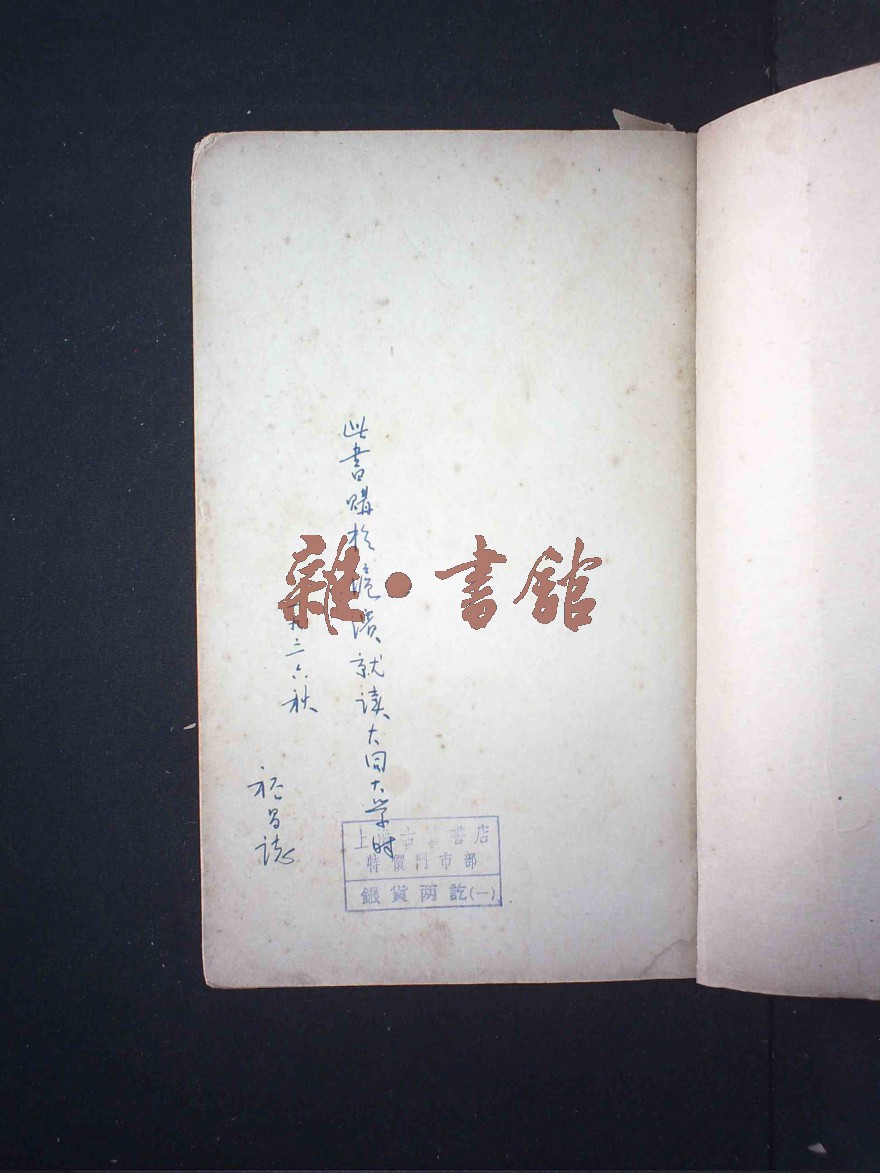 此書購於滬濱就读大同大学时
一九三六秋
裕昌誌
雜·書館
上海古籍書店
特價門市部
銀貨两訖(一)